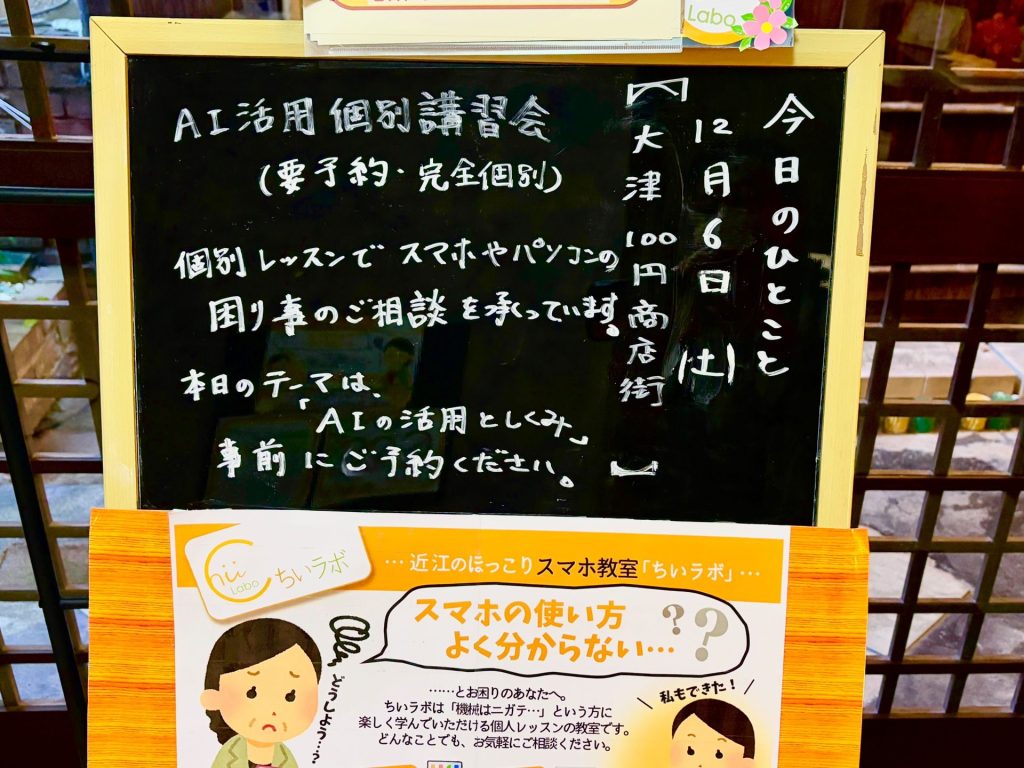 Labo
今日のひとこと
12月6日(土)
【大津100円商店街】
AI活用個別講習会
(要予約・完全個別)
個別レッスンでスマホやパソコンの
困り事のご相談を承っています。
本日のテーマは、
「AIの活用としくみ」
事前にご予約ください。
Chii Labo ちいラボ
…近江のほっこりスマホ教室「ちいラボ」…
スマホの使い方
よく分からない…??
どうしよう…?
……とお困りのあなたへ。
ちいラボは「機械はニガテ…」という方に
楽しく学んでいただける個人レッスンの教室です。
どんなことでも、お気軽にご相談ください。
私もできた!